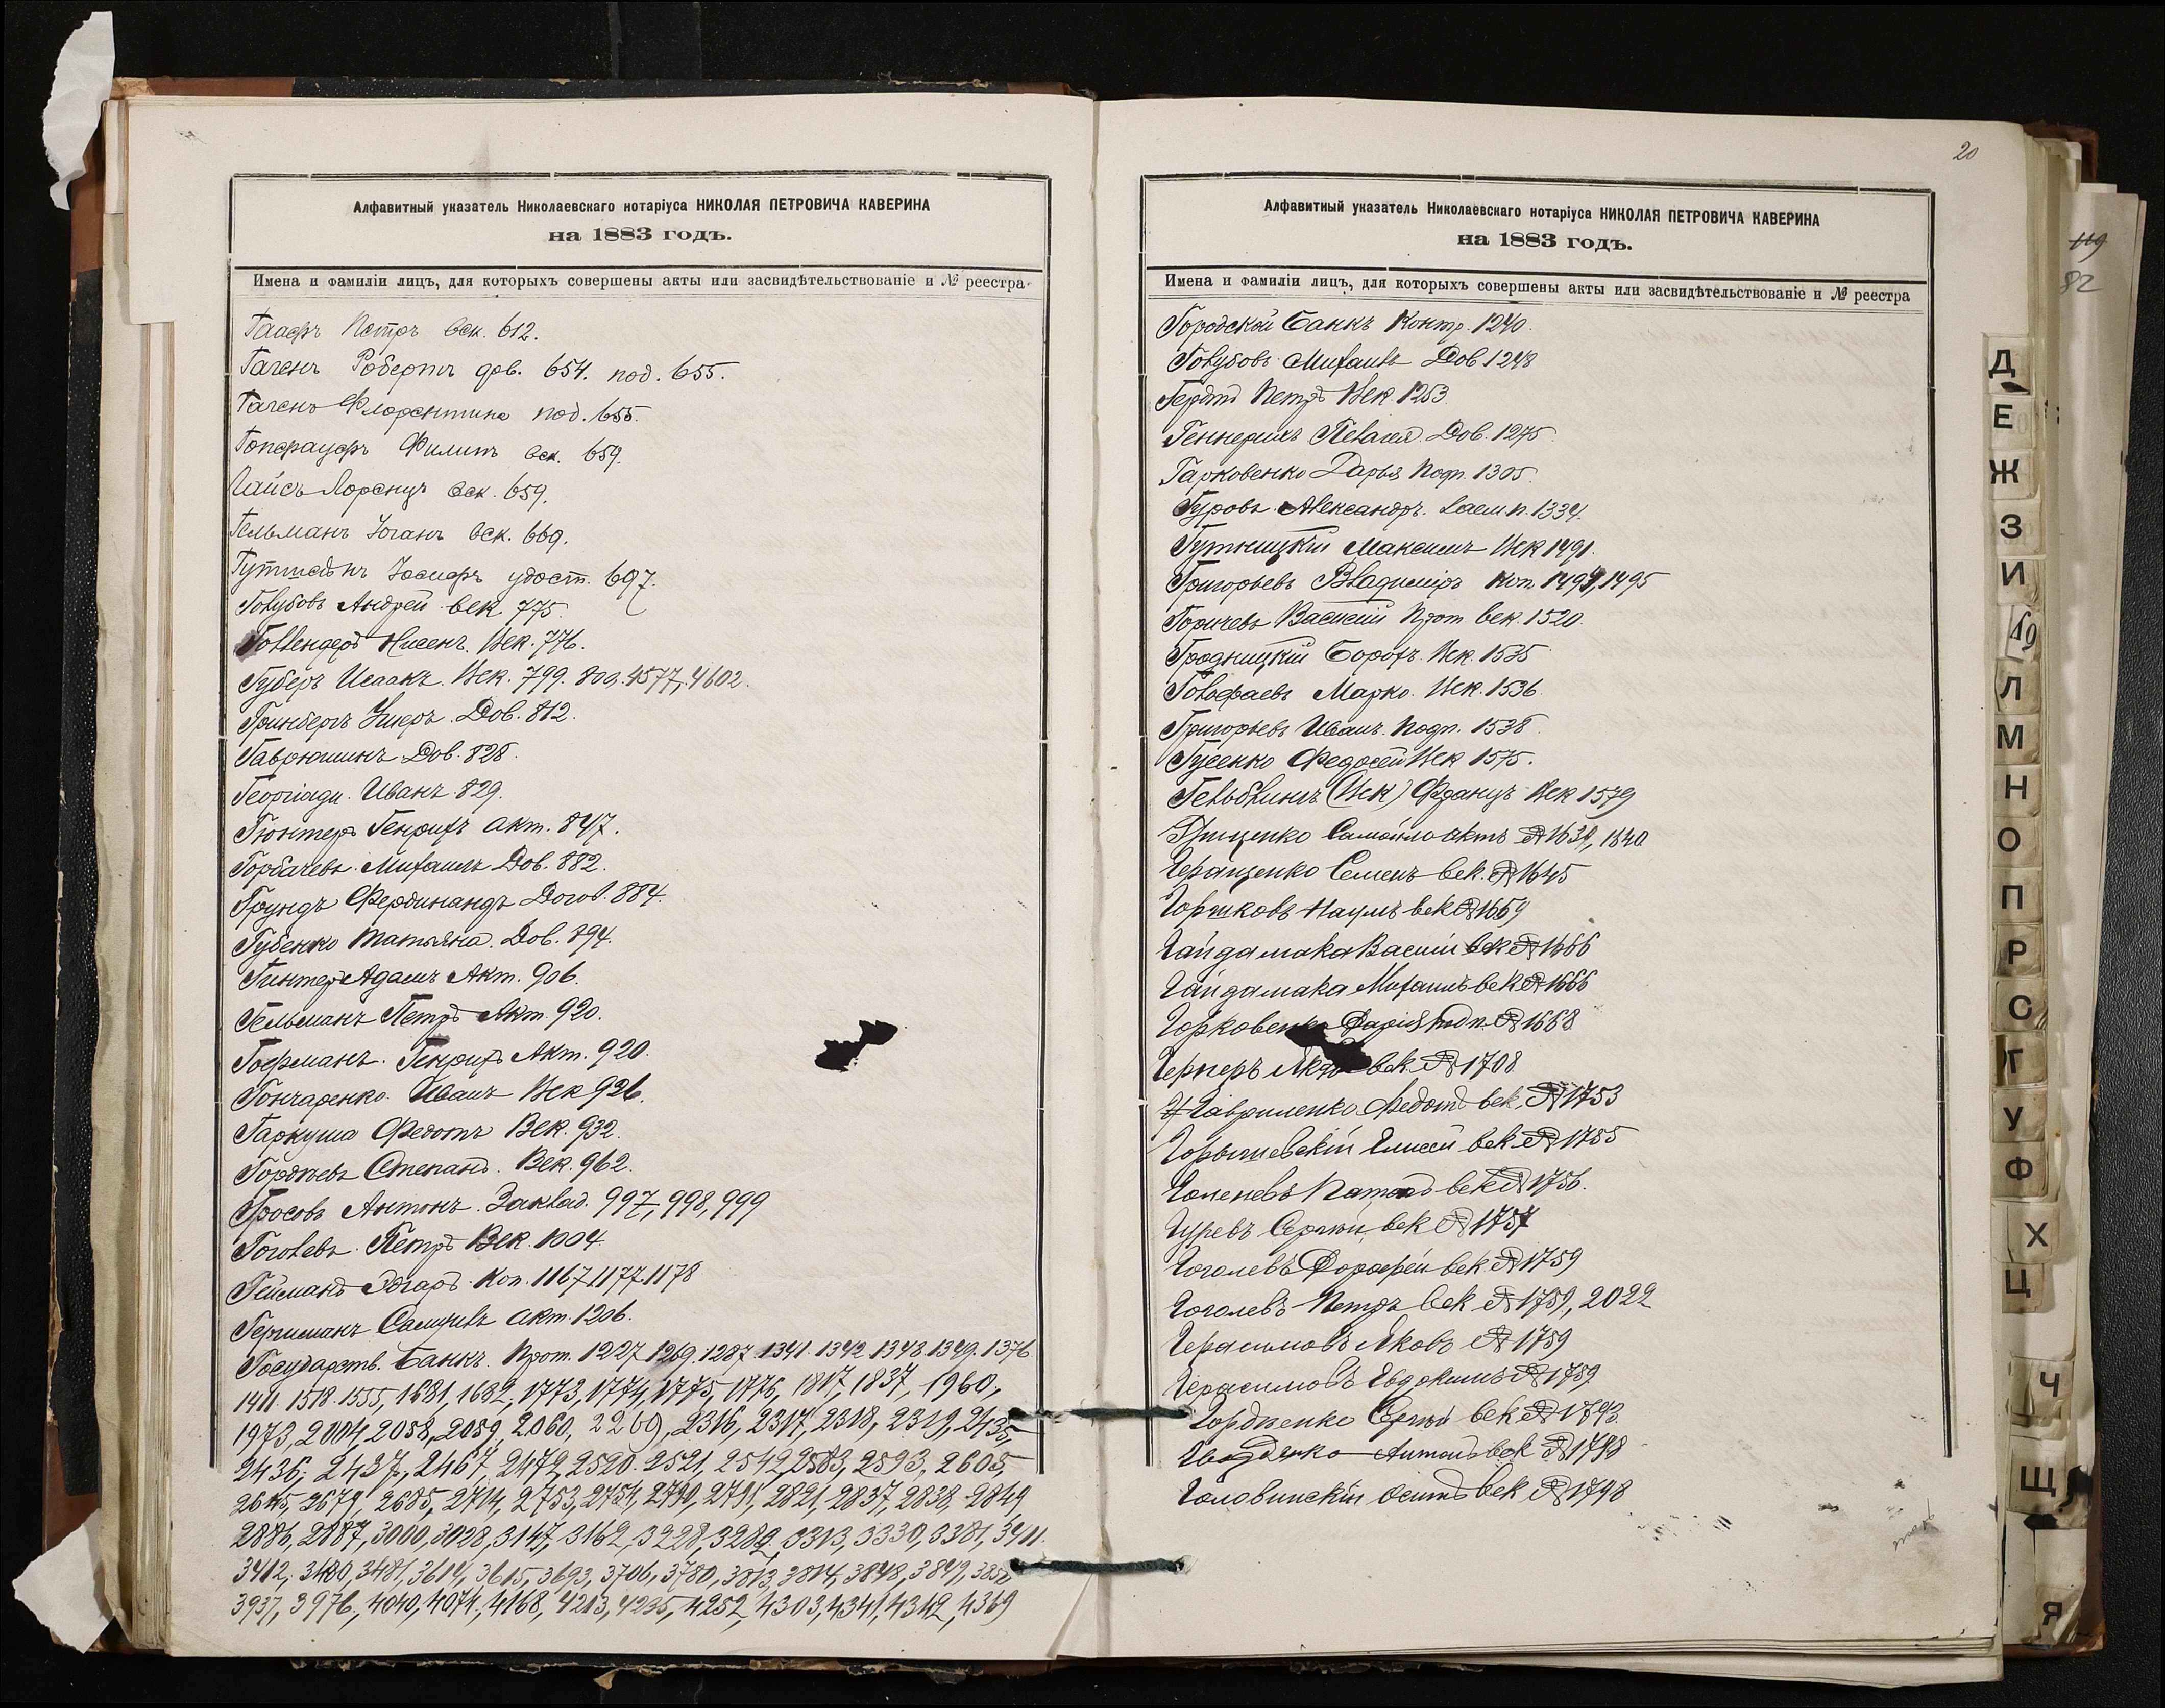 Алфавитный указатель Николаевскаго нотаріуса НИКОЛАЯ ПЕТРОВИЧА КАВЕРИНА
на 1883 годъ.
Имена и фамиліи лицъ, для которыхъ совершены акты или засвидѣтельствованіе и № реестра
Гаафъ Петръ век. 612.
Гагенъ Робертъ дов. 654. под. 655.
Гагенъ Флорентина под. 655.
Гопфауфъ Филипъ век. 659.
Гайсъ Лоренцъ век. 659.
Гельманъ Іоганъ век. 669.
Гутшейнъ Іосифъ удост. 697.
Голубовъ Андрей век. 775.
Голлендеръ Нисенъ. Век. 776.
Губеръ Исаакъ. Век. 799. 800. 4577, 4602.
Гринбергъ Дов. 812.
Гаврюшинъ Дов. 828.
Георгіади. Иванъ. 829.
Гюнтеръ Генрихъ акт. 847.
Горбачевъ Михаилъ Дов. 882.
Грундъ Фердинандъ Догов. 884.
Губенко Татьяна. Дов. 894.
Гинтеръ Адамъ Акт. 906.
Гельманъ Петръ Акт. 920.
Гофманъ. Генрихъ Акт. 920.
Гончаренко. Иванъ Век 926.
Гаркуша Федотъ Век. 932.
Гордѣевъ Степанъ. Век. 962.
Гросовъ Антонъ. Заклад. 997, 998, 999
Гоголевъ. Петръ Век. 1004.
Гейманъ Эдгаръ. Коп. 1167 1177 1178
Гершманъ акт. 1206.
Государств. Банкъ. Прот. 1227 1269. 1287 1341. 1342. 1348. 1349. 1376
1411. 1518. 1555, 1681, 1682, 1773, 1774, 1775, 1776, 1817, 1837, 1960,
1973, 2004, 2058, 2059, 2060, 2260, 2316, 2317, 2318, 2319, 2435,
2436, 2437, 2467, 2472, 2520. 2521, 2542, 2583, 2593, 2605,
2645, 2679, 2685, 2714, 2753, 2754, 2790, 2791, 2821, 2837, 2838, 2849,
2886, 2887, 3000, 3028, 3147, 3162, 3228, 3282, 3313, 3330, 3381, 3411.
3412, 3480, 3481, 3614, 3615, 3693, 3706, 3780, 3813, 3814, 3848, 3849, 3850
3937, 3976, 4040, 4074, 4168, 4213, 4235, 4252, 4303, 4341, 4342, 4369
20
Алфавитный указатель Николаевскаго нотаріуса НИКОЛАЯ ПЕТРОВИЧА КАВЕРИНА
на 1883 годъ.
Имена и фамиліи лицъ, для которыхъ совершены акты или засвидѣтельствованіе и № реестра
Городской Банкъ Контр. 1240.
Голубовъ Михаилъ Дов 1248
Гердтъ Петръ Век 1253.
Геннерихъ Пелагея Дов. 1275.
Гарковенко Дарья Подп. 1305.
Гуровъ Александръ. 1334.
Гутницкій Максимъ Век 1491.
Григорьевъ Владиміръ Коп. 1494, 1495
Горячевъ Василій Прот век. 1520.
Гродницкій Борохъ. Век. 1535
Голофаевъ Марко. Век. 1536.
Григорьевъ Иванъ. Подп. 1538.
Гусенко Федосей Век 1575.
Гельблингъ (Век) Францъ Век 1579
Грищенко Самойло актъ № 1639, 1840
Геращенко Семенъ век. № 1645
Горшковъ Наумъ век № 1659
Гайдамака Василій век № 1666
Гайдамака Михаилъ век № 1666
Горковенко Дарія подп. № 1668
Гернеръ век. № 1708
Гавриленко Федотъ век. № 1753
Горбышевскій Елисей век. № 1755
век № 1756.
Гуревъ Сергѣй век № 1757
Гоголевъ Дорофей век. № 1759
Гоголевъ Петръ век № 1759, 2022
Герасимовъ Яковъ № 1759
Герасимовъ Евдокимъ № 1759
Гордѣенко Сергѣй век № 1793.
Антонъ век № 1798
Головинскій Осипъ век № 1798
119
82
Д
Е
Ж
З
И
Л
М
Н
О
П
Р
С
Т
У
Ф
Х
Ц
Ч
Щ
Я